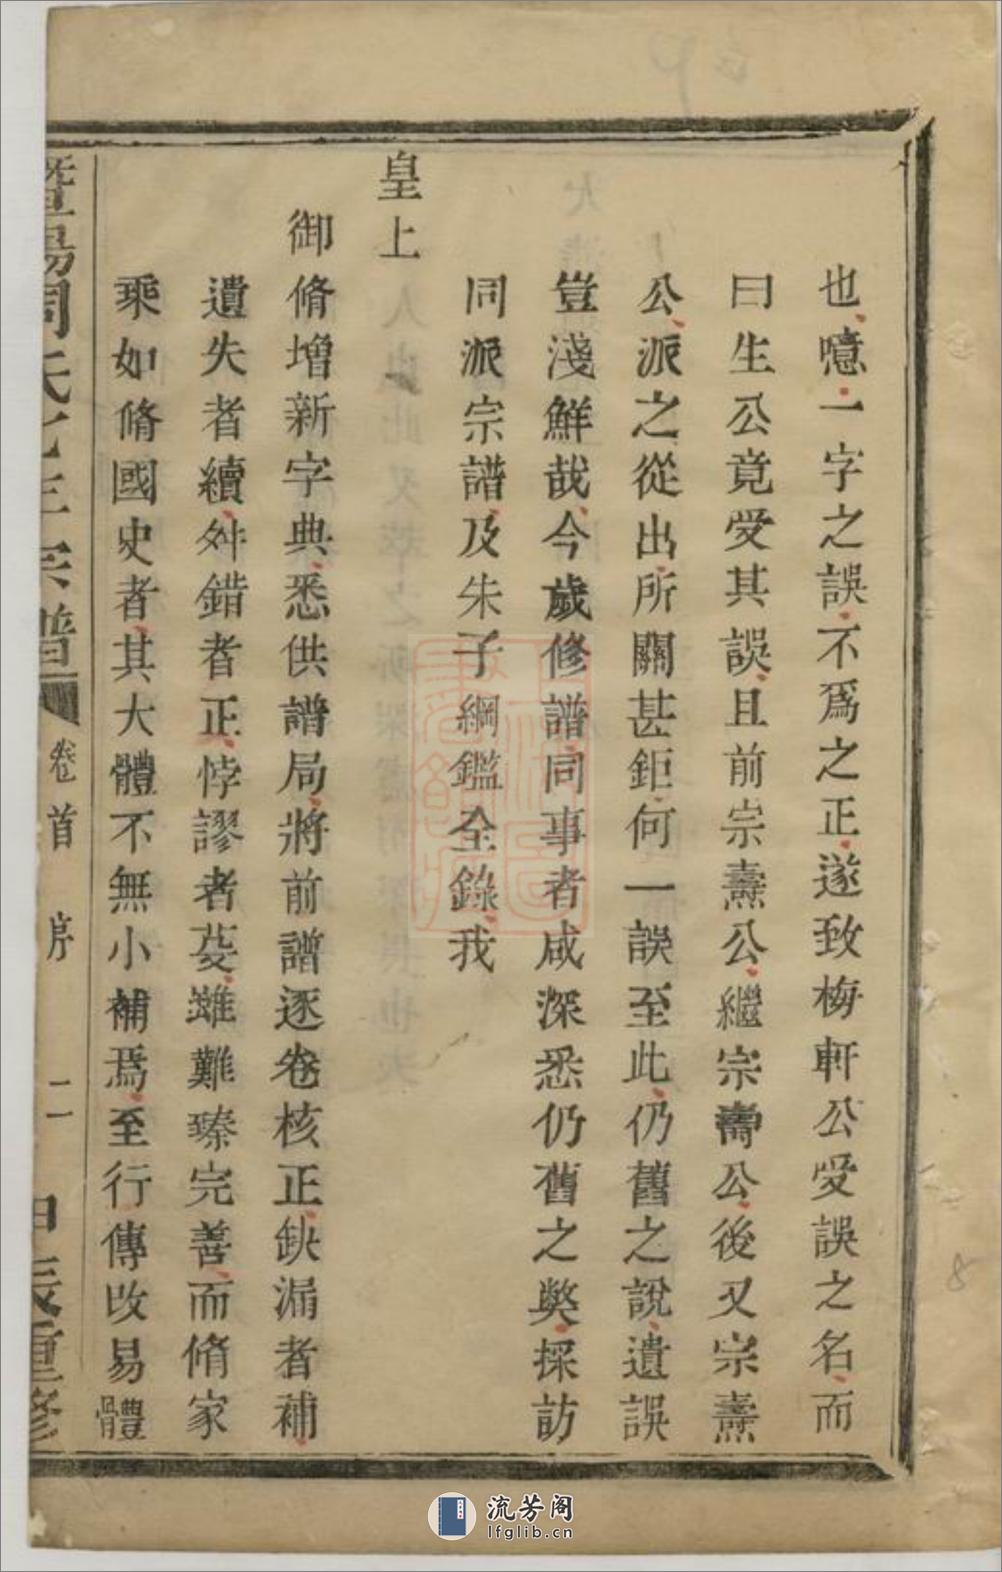 也噫一字之誤不爲之正遂致梅軒公受誤之名而
曰生公竟受其誤且前宗燾公繼宗壽公後又宗燾
公派之從出所關甚鉅何一誤至此仍舊之說遺誤
豈淺鮮哉今歲修譜同事者咸深悉仍舊之獘採訪
同派宗譜及朱子綱鑑全錄我
皇上
御脩增新字典悉供譜局將前譜逐卷核正缺漏者補
遺失者續舛錯者正悖謬者芟雖難臻完善而脩家
乘如脩國史者其大體不無小補焉至行傳改易體
暨陽周氏 宗譜
卷首
序
二
甲辰重修
流芳阁
lfglib.cn
8